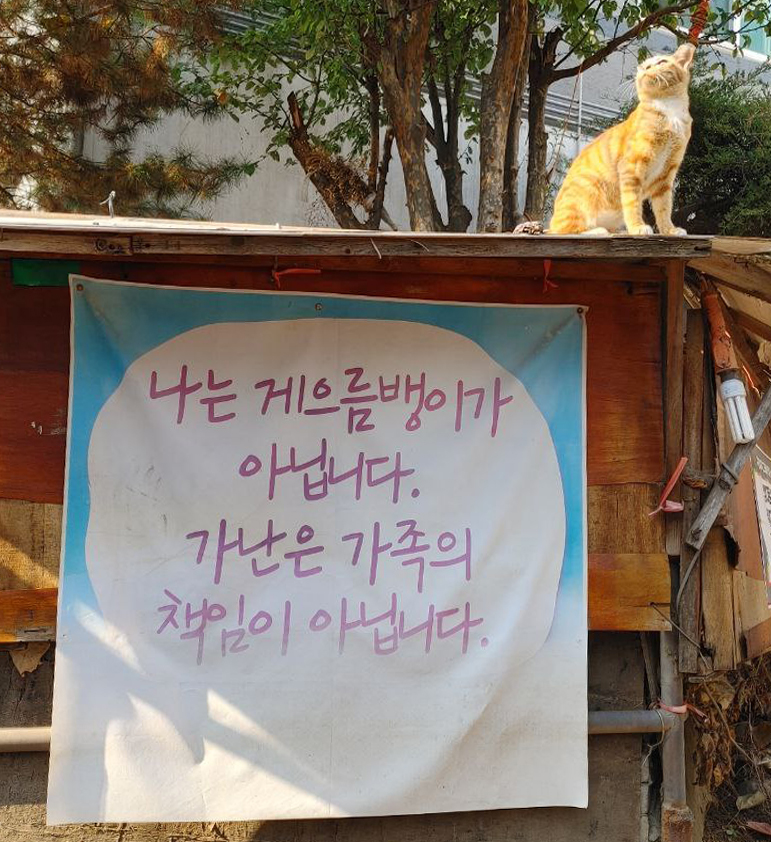 나는 게으름뱅이가
아닙니다.
가난은 가족의
책임이 아닙니다.